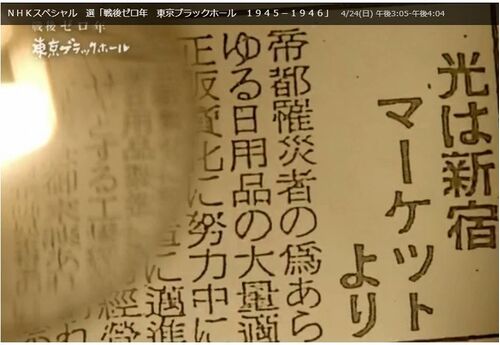 ＮＨＫスペシャル　選「戦後ゼロ年　東京ブラックホール　１９４５－１９４６」　4/24(日) 午後3:05-午後4:04
戦後ゼロ年
東京ブラックホール
光は新宿
マーケツト
より
帝都罹災者の爲あら
ゆる日用品の大量適
正販賣比に努力中に
に適進
日用品
とする
經營